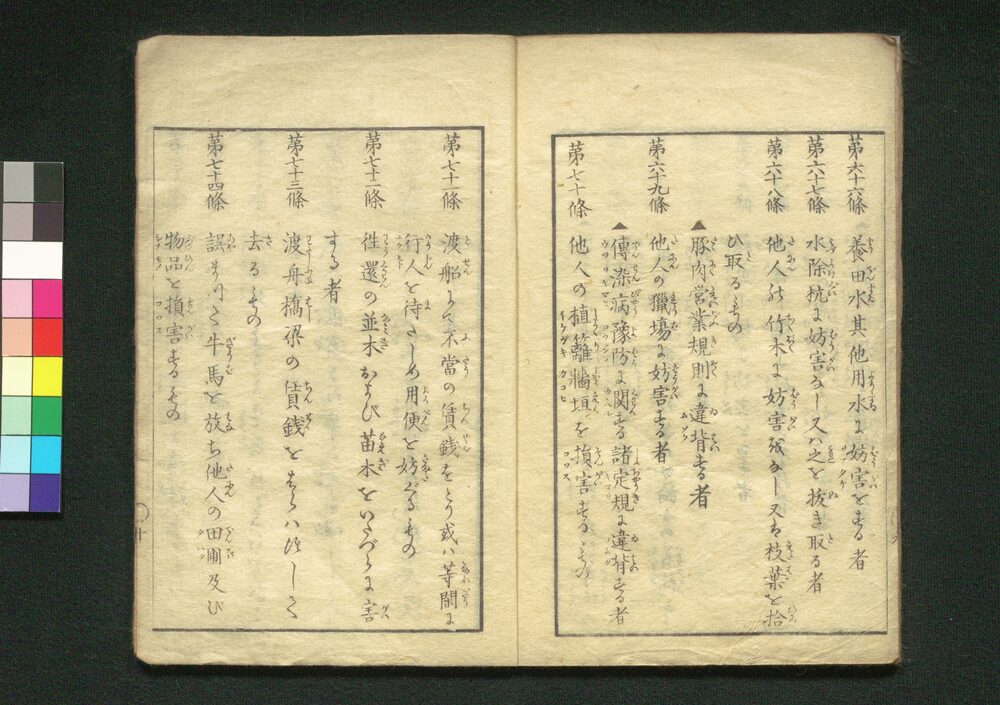 第六十六條 養田水其他用水に妨害をする者
第六十七條 水除杭に妨害なし又ハ之を抜き取る者
第六十八條 他人の竹木に妨害をなし又は枝葉を拾
ひ取るもの
▲豚肉営業規則に違背する者
第六十九條 他人の獵場に妨害する者
▲傳染病豫防に関する諸定規に違背する者
第七十條 他人の植籬牆垣を損害するもの
第七十一條 渡船にて不當の賃銭をとり或ハ等閑に
行人を待たしめ用便を妨ぐるもの
第七十二條 徃還の並木および苗木をいたづらに害
する者
第七十三條 渡舟橋梁の賃銭をはらハずして
去るもの
第七十四條 誤まりて牛馬を放ち他人の田圃及び
物品を損害するもの